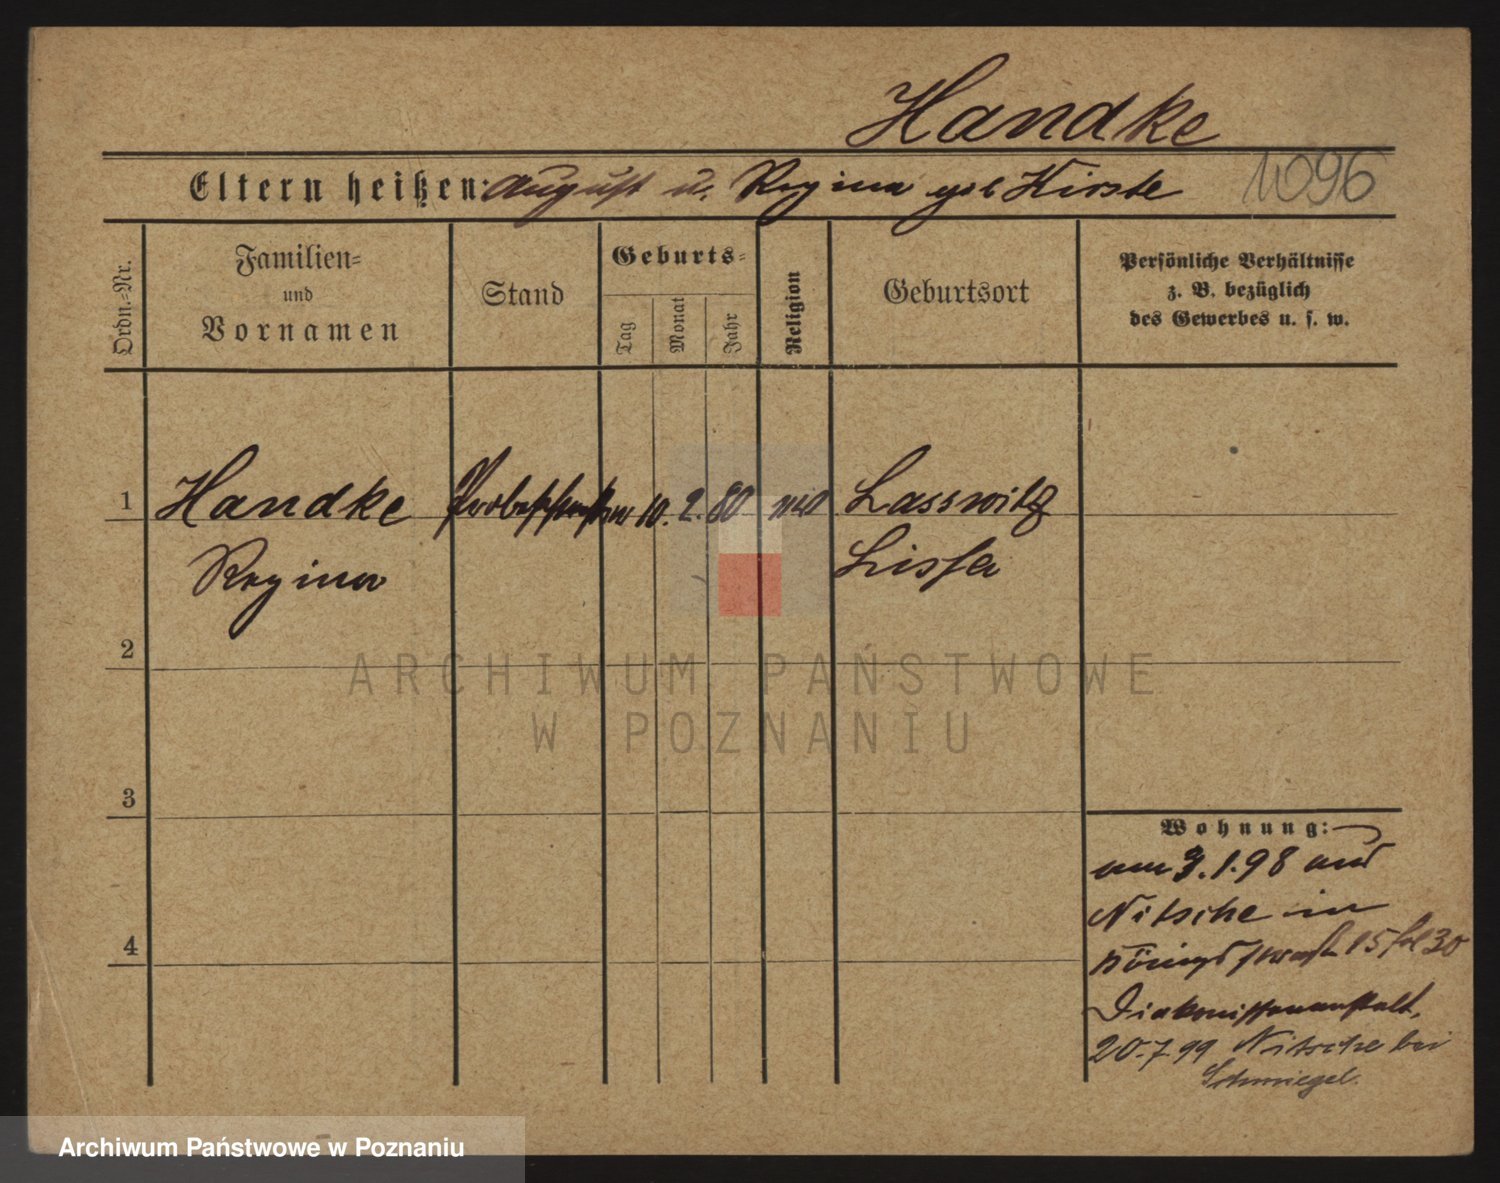 Handke
Eltern heißen: August u. Regina geb Kirste 1096
Ordn.=Nr.
Familien=
und
Vornamen
Stand
Geburts=
Tag
Monat
Jahr
Religion
Geburtsort
Persönliche Verhältnisse
z. B. bezüglich
des Gewerbes u. s. w.
1 Handke Probeschwester 10. 2. 80 Lasswitz
Regina Lissa
2
3
4
Wohnung:
am 3.1.98 aus
Nitsche in
Königs 15 fol 30
Diakonissenanstalt,
20.7 99 Nitsche bei
Schmiegel.
ARCHIWUM PAŃSTWOWE
W POZNANIU
Archiwum Państwowe w Poznaniu